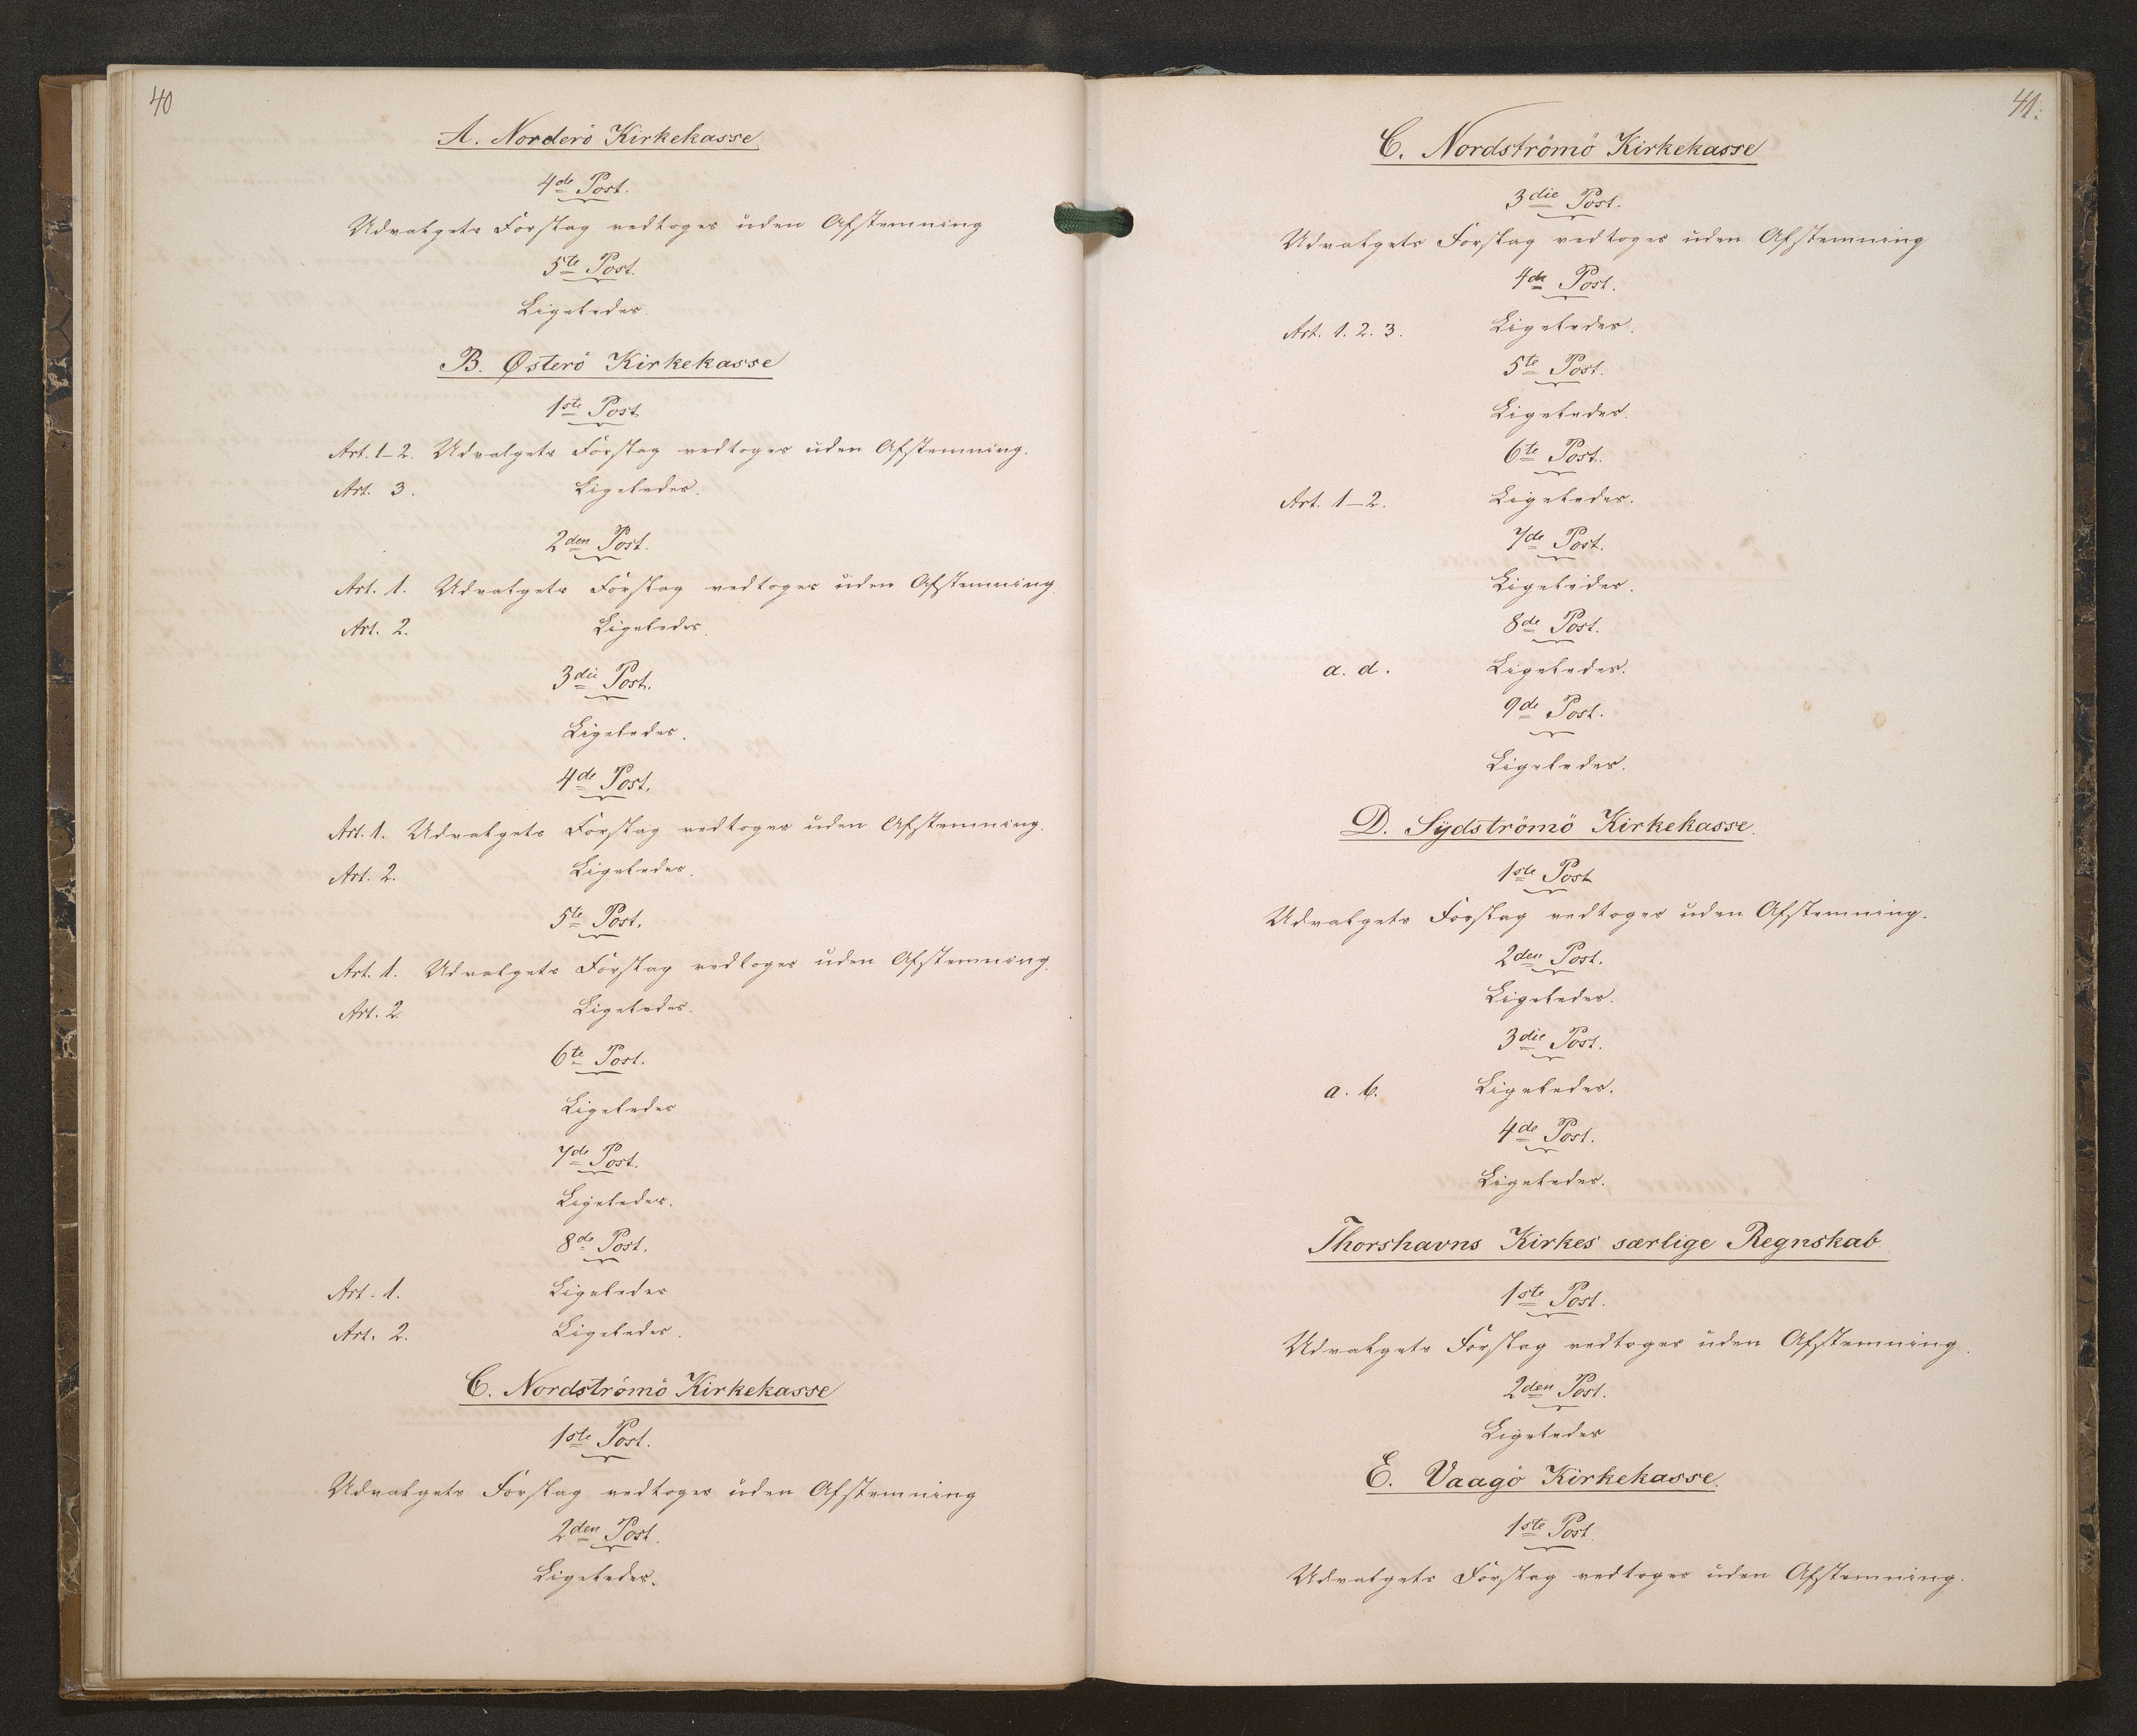 40
A. Norderö Kirkekasse
4de Post.
Udvalgets Forslag vedtoges uden Afstemning
5te Post.
Ligeledes.
B. Østerö Kirkekasse
1ste Post
Art. 1-2. Udvalgets Forslag vedtoges uden Afstemning.
Art. 3. Ligeledes.
2den Post.
Art. 1. Udvalgets Forslag vedtoges uden Afstemning
Art. 2. Ligeledes.
3die Post.
Ligeledes.
4de Post.
Art. 1. Udvalgets Forslag vedtoges uden Afstemning.
Art. 2. Ligeledes.
5te Post.
Art. 1. Udvalgets Forslag vedtoges uden Afstemning.
Art. 2. Ligeledes.
6te Post.
Ligeledes
7de Post.
Ligeledes.
8de Post.
Art. 1. Ligeledes
Art. 2. Ligeledes.
C. Nordströmö Kirkekasse
1ste Post.
Udvalgets Forslag vedtoges uden Afstemning
2den Post.
Ligeledes.
41.
C. Nordströmö Kirkekasse
3die Post.
Udvalgets Forslag vedtoges uden Afstemning
4de Post.
Art. 1. 2. 3. Ligeledes.
5te Post.
Ligeledes.
6te Post.
Art. 1-2. Ligeledes.
7de Post.
Ligeledes.
8de Post.
a. d. Ligeledes.
9de Post.
Ligeledes.
D. Sydströmö Kirkekasse.
1ste Post
Udvalgets Forslag vedtoges uden Afstemning.
2den Post.
Ligeledes.
3die Post.
a. b. Ligeledes.
4de Post.
Ligeledes.
Thorshavns Kirkes særlige Regnskab.
1ste Post.
Udvalgets Forslag vedtoges uden Afstemning.
2den Post.
Ligeledes
E. Vaagö Kirkekasse.
1ste Post.
Udvalgets Forslag vedtoges uden Afstemning.